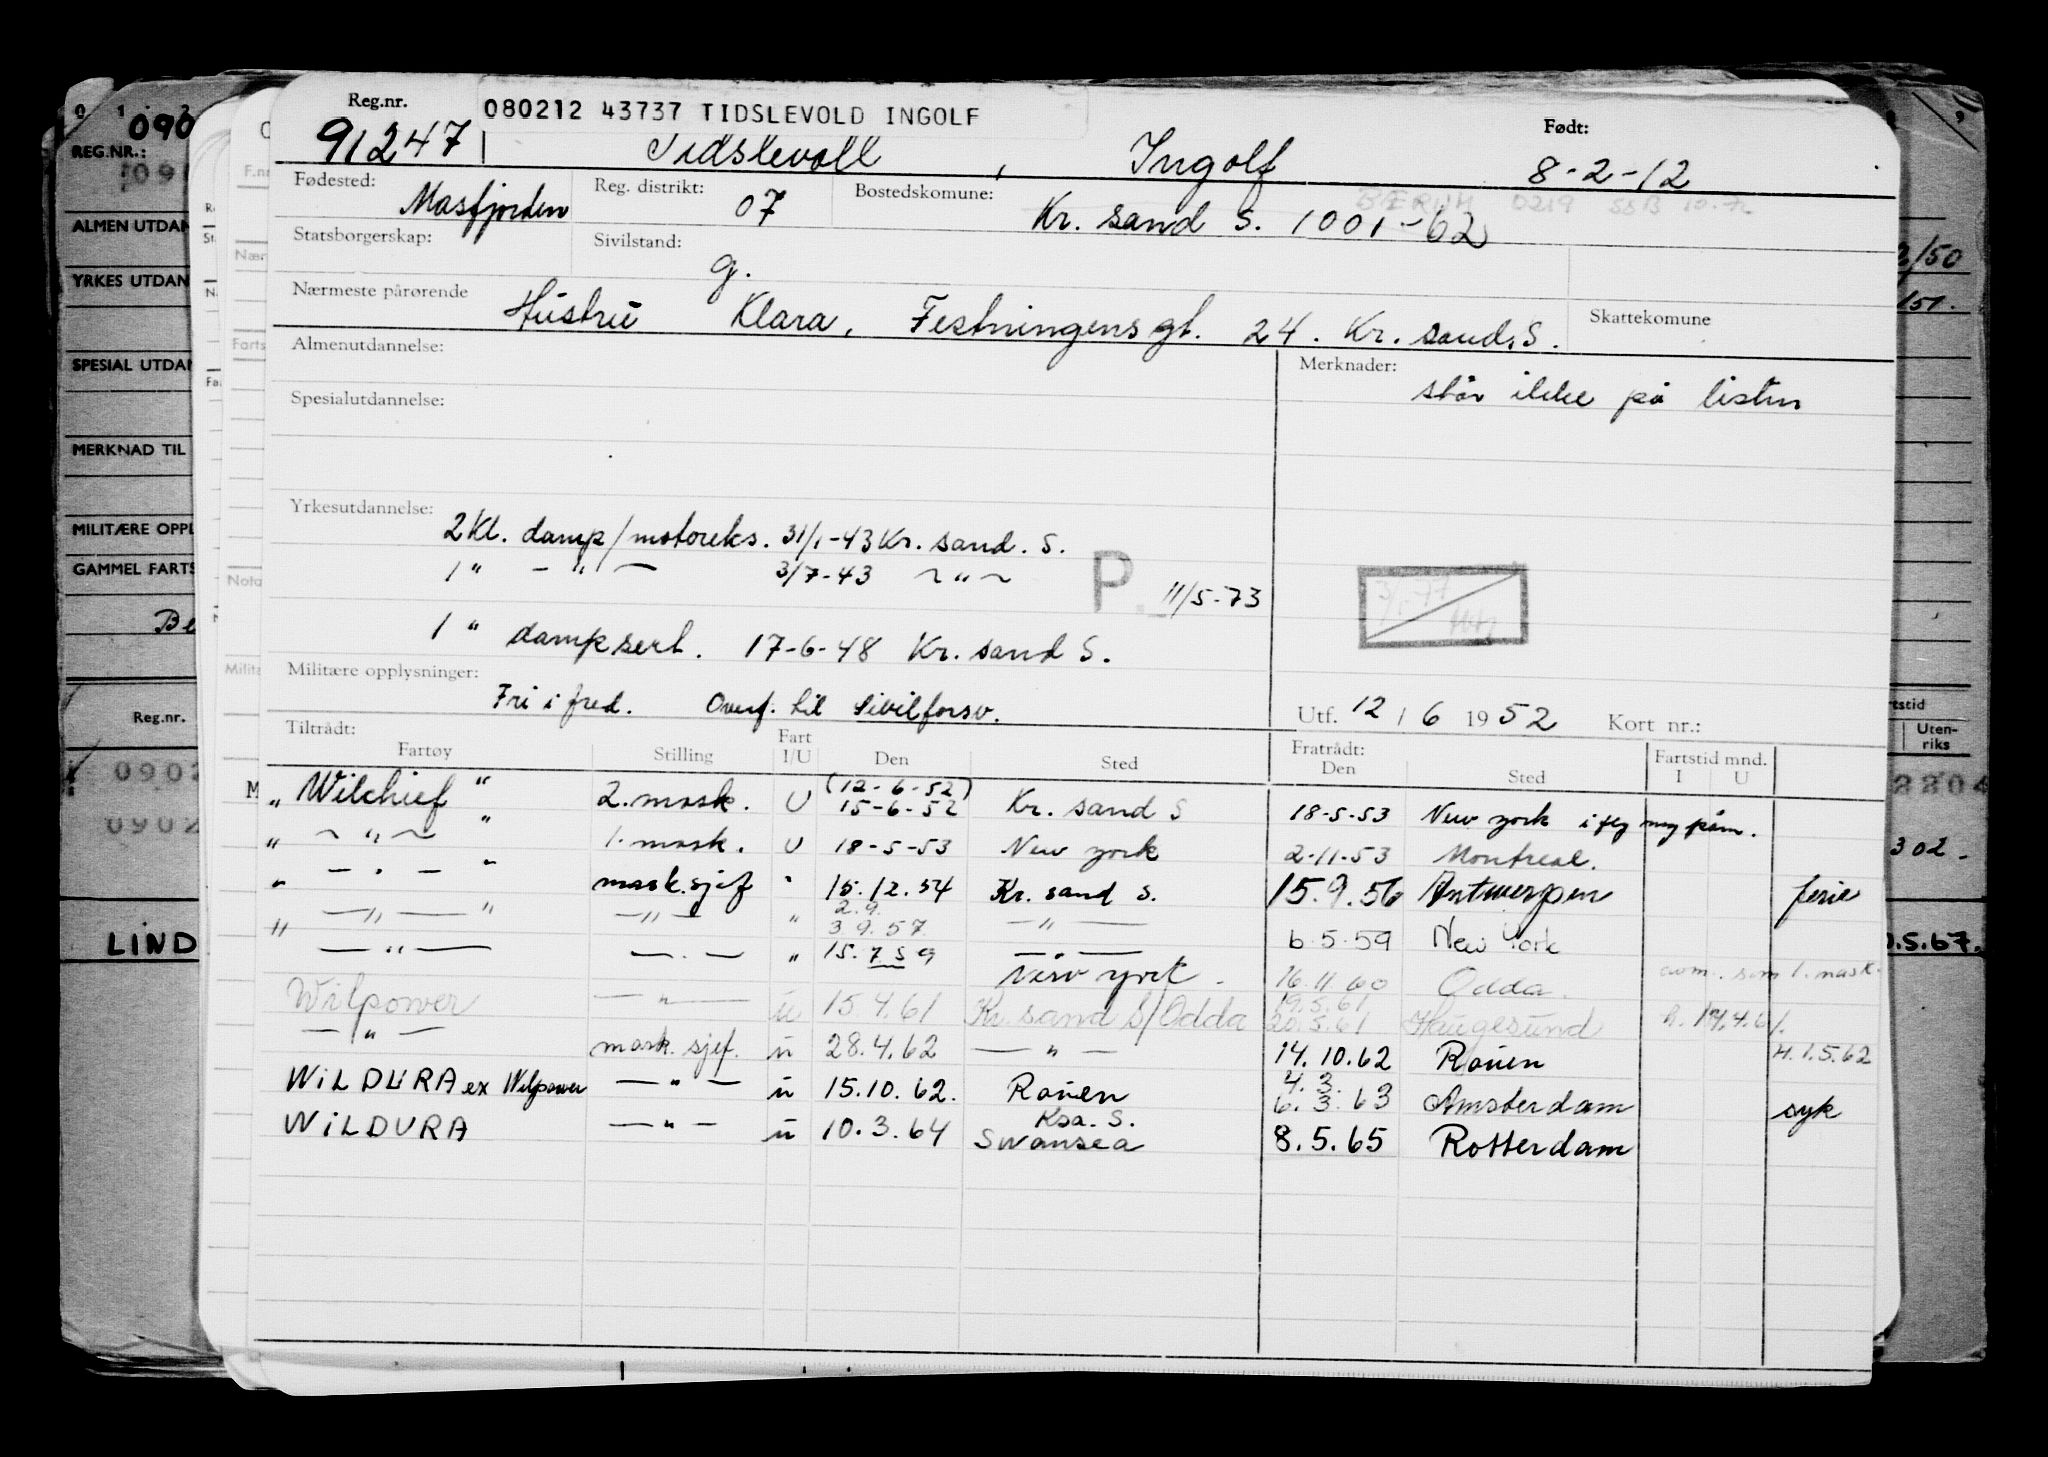 080212 43737 TIDSLEVOLD INGOLF
Reg.nr.
91247
Tidslevoll, Ingolf
Født:
8-2-12
Fødested: Masfjorden
Reg. distrikt: 07
Bostedskomune: Kr. sand S. 1001-62
BÆRUM 0219 SSB 10.72
Statsborgerskap:
Sivilstand: g.
Nærmeste pårørende Hustru Klara, Festningensgt. 24. Kr. sand. S.
Skattekomune
Almenutdannelse:
Merknader: står ikke på listen
Spesialutdannelse:
Yrkesutdannelse: 2 Kl. damp/motoreks. 31/1-43 Kr. sand. S.
1 " — " — 3/7-43 ~ " ~
P. 11/5-73
1 " dampsert. 17-6-48 Kr. sand S.
Militære opplysninger: Fri i fred. Overf. til Sivilforsv.
Utf. 12 / 6 1952 Kort nr.:
Tiltrådt:
Fartøy Stilling Fart I/U Den Sted
Fratrådt: Den Sted Fartstid mnd. I U
" Wilchief " 2. mask. U (12-6-52) 15-6-52 Kr. sand S 18-5-53 New York
" ~ " ~ " 1. mask. U 18-5-53 New York 2-11-53 Montreal.
" — " — " mask.sjef " 15.12.54 Kr. sand S. 15.9.56 Antwerpen ferie
" — " — " — " — " 2.9. 3.9.57 — " — 6.5.59 New York
— " — — " — " 15.7.59 — " — New York. 16.11.60 Odda. som 1. mask.
Wilpower — " — u 15.4.61 Kr. sand S/Odda 19.5.61 20.5.61 Haugesund
— " — mask. sjef. u 28.4.62 — " — 14.10.62 Rouen H. 1.5.62
WILDURA ex Wilpower — " — u 15.10.62. Rouen 4.3. 6.3.63 Amsterdam syk
WILDURA — " — u 10.3.64 Ksa. S. Swansea 8.5.65 Rotterdam
REG.NR.:
ALMEN UTDAN
YRKES UTDAN
SPESIAL UTDAN
MERKNAD TIL
MILITÆRE OPPL
GAMMEL FARTS
Reg.nr.
0902
0902
LIND
Uten-
riks
302-
.5.67.